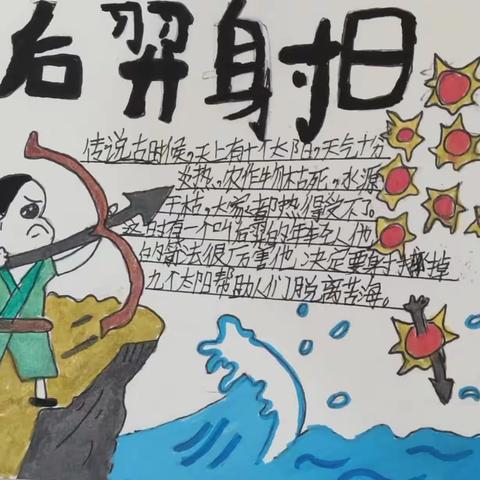 后羿射日
传说古时候，天上有十个太阳。天气十分
炎热。农作物枯死。水源
干枯。大家都热得受不了。
这时有一个叫后羿的年轻人他
的箭法很厉害他决定要射掉
九个太阳帮助人们脱离苦海。